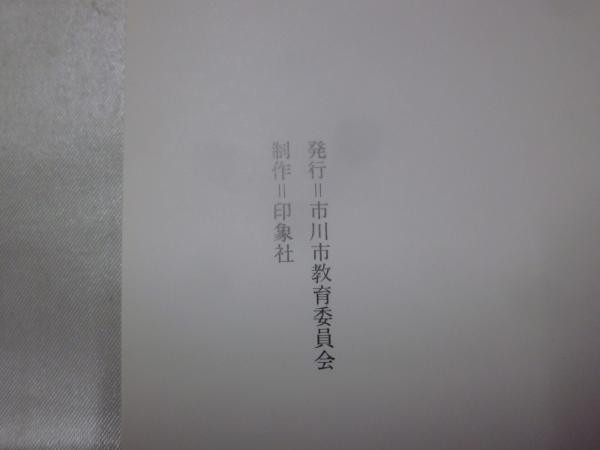 発行＝市川市教育委員会
制作＝印象社